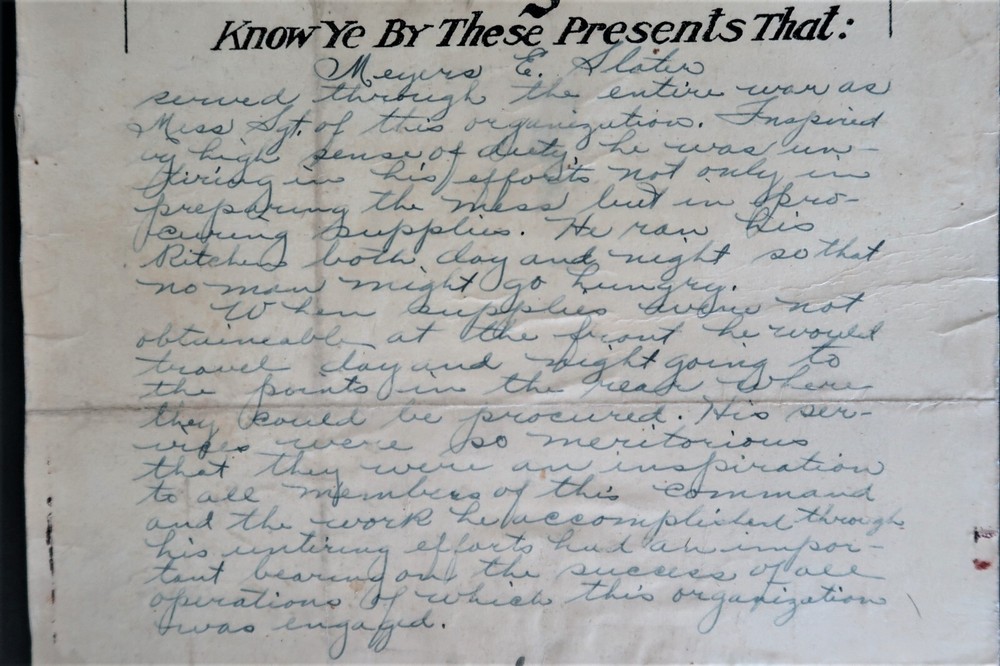 Know Ye By These Presents That:
Meyers E. Slater
served through the entire war as
Mess Sgt. of this organization. Inspired
by high sense of duty, he was un-
tiring in his efforts not only in
preparing the mess but in pro-
curing supplies. He ran his
Kitchens both day and night so that
no man might go hungry.
When supplies were not
obtaineable at the front he would
travel day and night going to
the points in the rear where
they could be procured. His ser-
vices were so meritorious
that they were an inspiration
to all members of this command
and the work he accomplished through
his untiring efforts had an impor-
tant bearing on the success of all
operations of which this organization
was engaged.